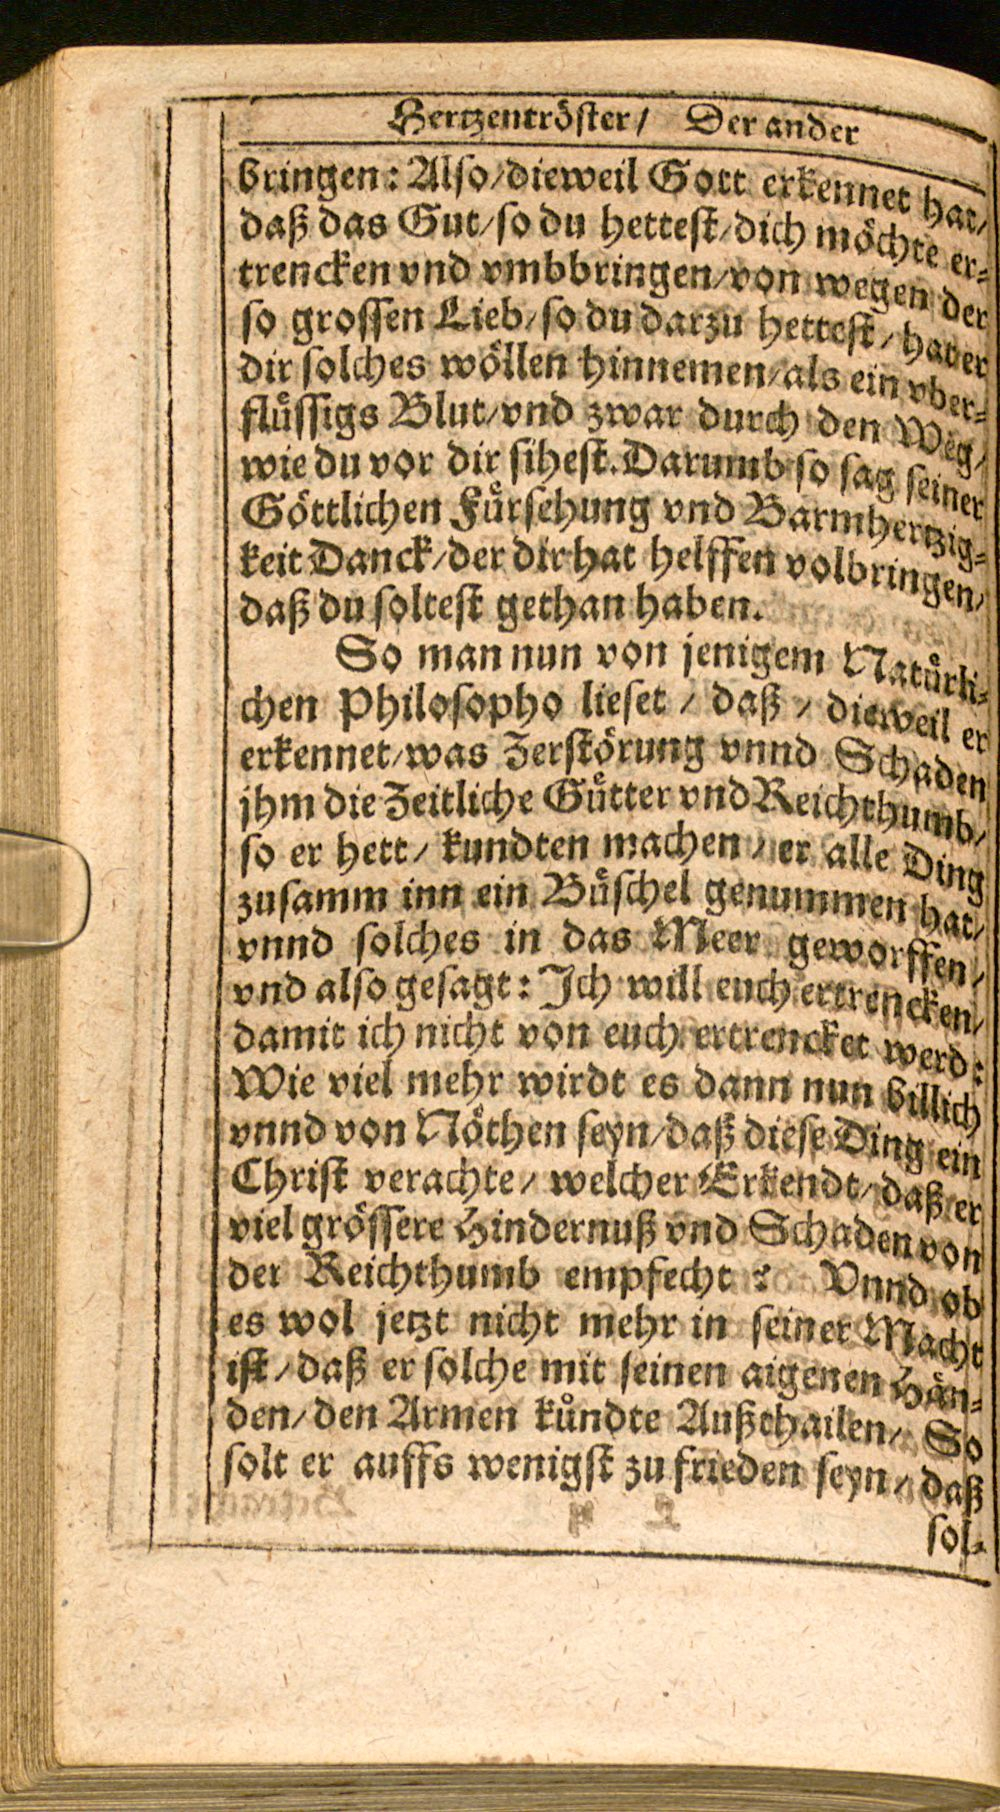 Hertzentröster/ Der ander
bringen: Also/dieweil Gott erkennet hat/
daß das Gut/so du hettest/dich möchte er-
trencken vnd vmbbringen/von wegen der
so grossen Lieb/so du darzu hettest/hat er
dir solches wöllen hinnemen/als ein vber-
flüssigs Blut/vnd zwar durch den Weg/
wie du vor dir sihest. Darumb so sag seiner
Göttlichen Fürsehung vnd Barmhertzig-
keit Danck/der dir hat helffen volbringen/
daß du soltest gethan haben.
So man nun von jenigem Natürli-
chen Philosopho lieset / daß / dieweil er
erkennet/was Zerstörung vnnd Schaden
jhm die Zeitliche Gütter vnd Reichthumb/
so er hett/ kundten machen / er alle Ding
zusamm inn ein Büschel genummen hat/
vnnd solches in das Meer geworffen/
vnd also gesagt: Ich will euch ertrencken/
damit ich nicht von euch ertrencket werd:
Wie viel mehr wirdt es dann nun billich
vnnd von Nöthen seyn/daß diese Ding ein
Christ verachte/ welcher Erkendt/daß er
viel grössere Hindernuß vnd Schaden von
der Reichthumb empfecht? Vnnd ob
es wol jetzt nicht mehr in seiner Macht
ist/daß er solche mit seinen aigenen Hän-
den/den Armen kündte Außthailen/ So
solt er auffs wenigst zu frieden seyn/ daß
sol-